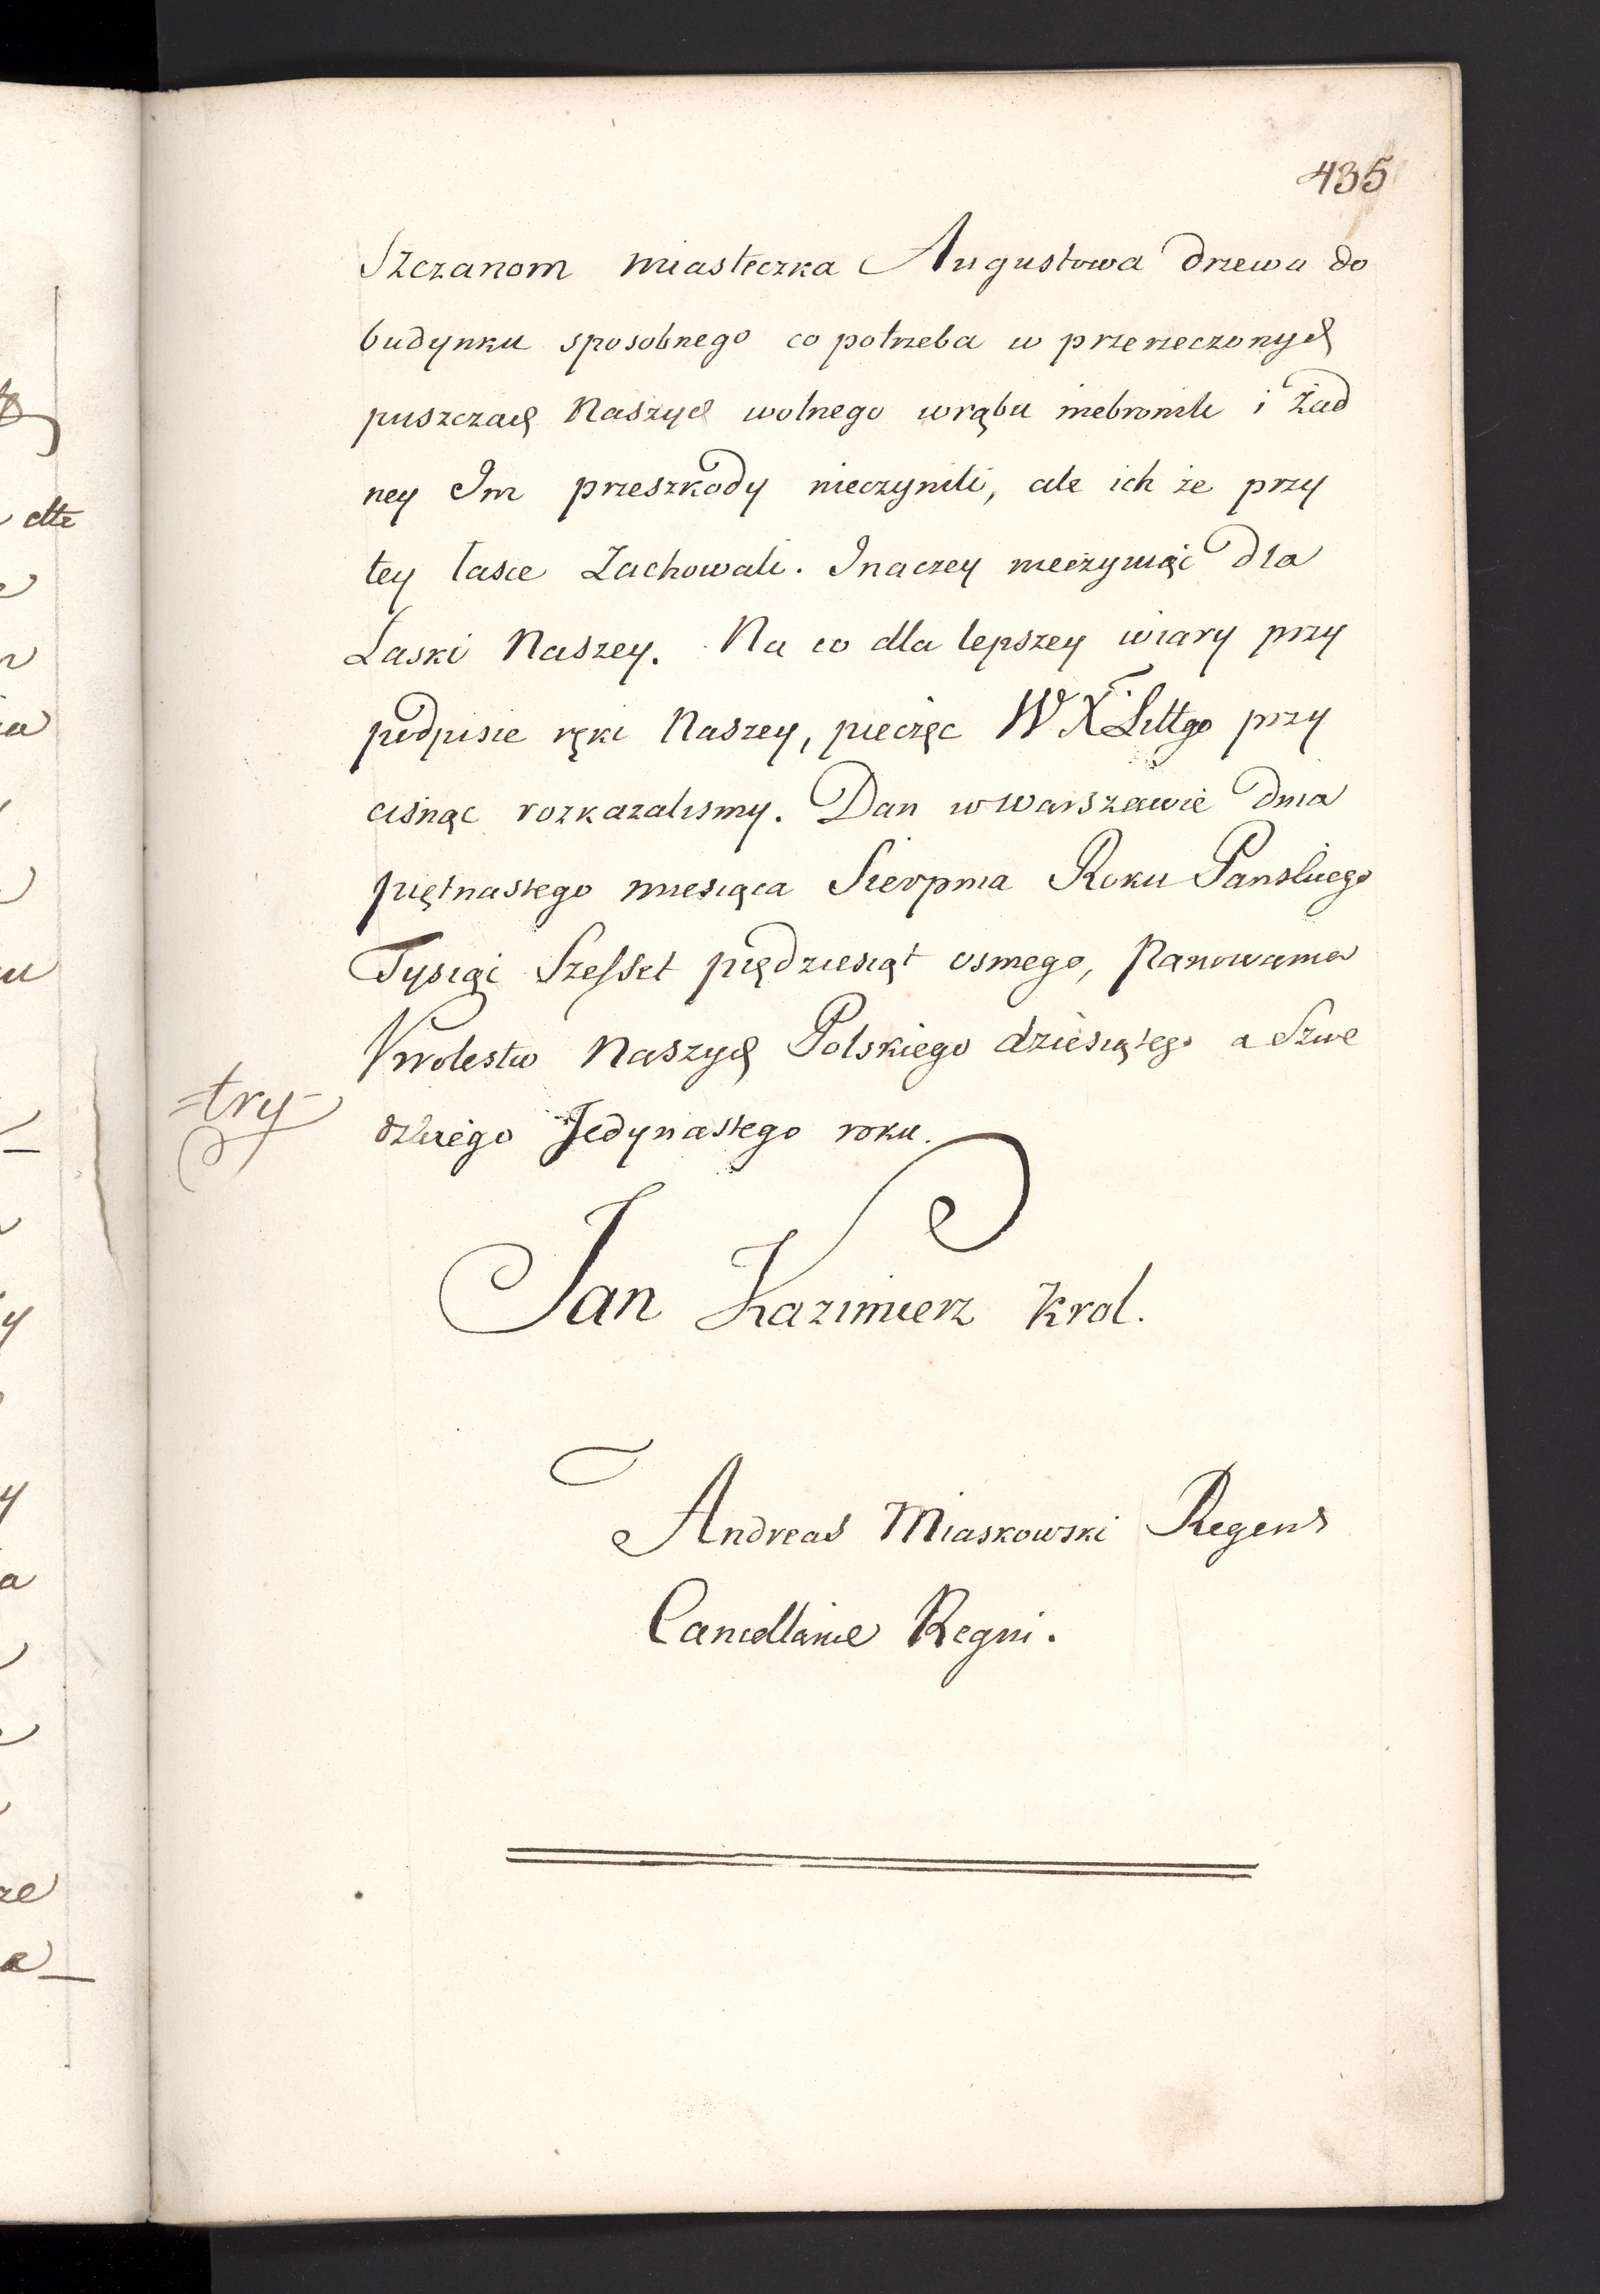 435
Szczanom miasteczka Augustowa drzewa do
budynku sposobnego co potrzeba w przerzeczonych
puszczach Naszych wolnego wrąbu niebronili i żad
ney Im przeszkody nieczynili, ale ich że przy
tey łasce Zachowali. Inaczey nieczyniąc dla
Łaski Naszey. Na co dla lepszey wiary przy
podpisie ręki Naszey, pieczęc W X Littgo przy
cisnąc rozkazalismy. Dan w Warszawie dnia
piętnastego miesiąca Sierpnia Roku Panskiego
Tysiąc Szesset piędziesiąt osmego, Panowania
Krolestw Naszych Polskiego dziesiątego a Szwe
dzkiego Jedynastego roku.
=try=
Jan Kazimierz Krol.
Andreas Miaskowski Regens
Cancellariae Regni.